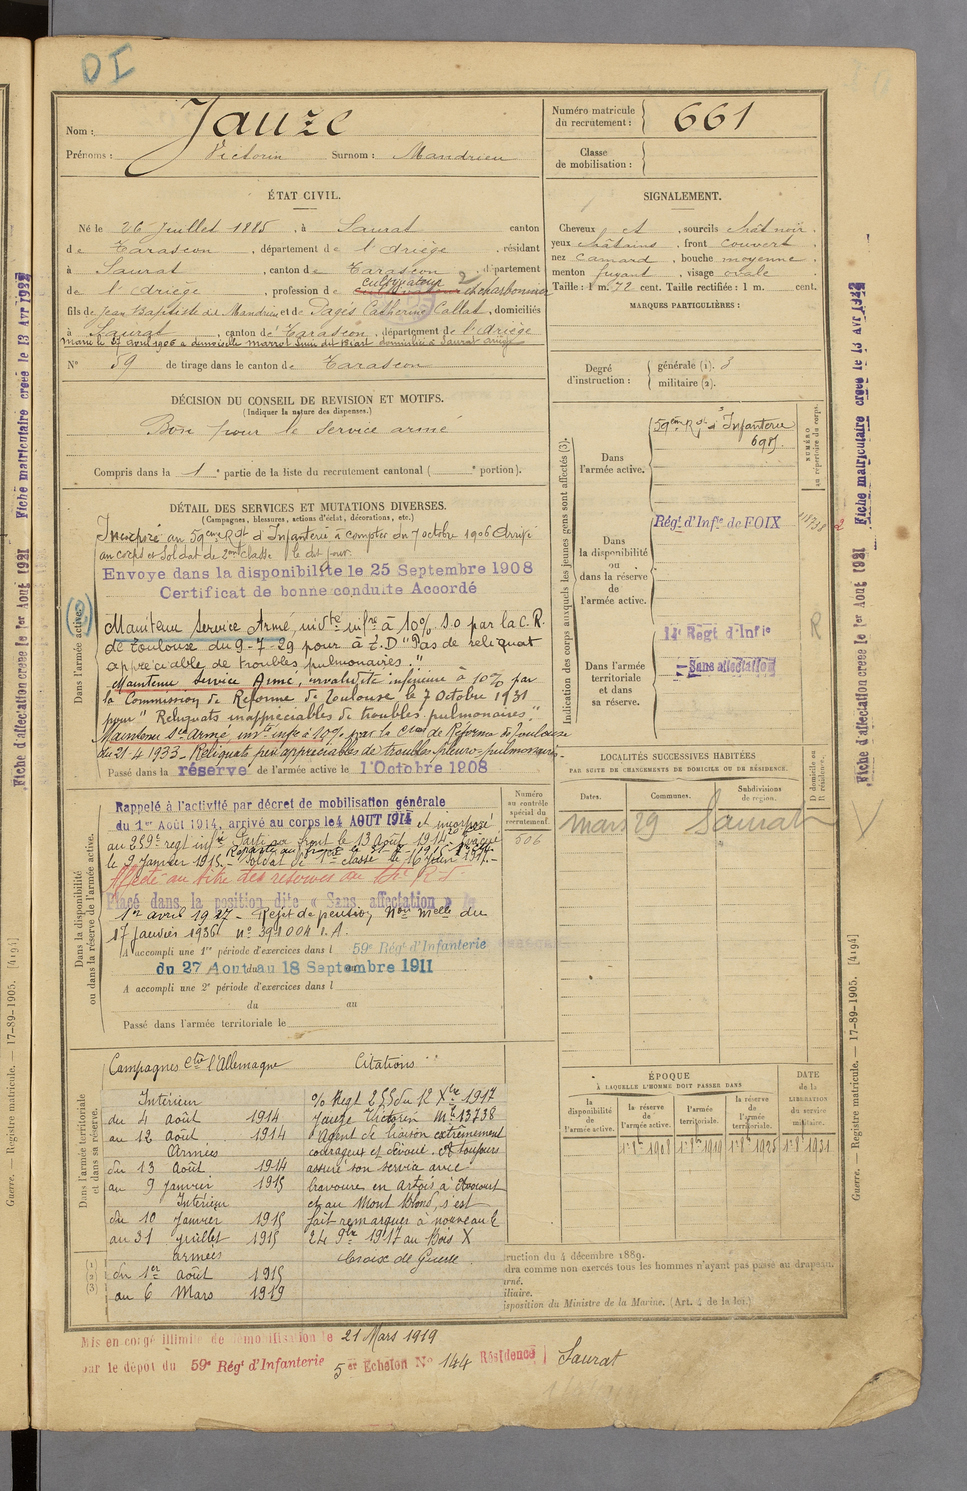 DI
Nom : Jauze
Prénoms : Victorin Surnom : Mandrieu
Numéro matricule du recrutement : 661
Classe de mobilisation :
ÉTAT CIVIL.
Né le 26 Juillet 1885, à Saurat canton
de Tarascon, département de l'Ariège, résidant
à Saurat, canton de Tarascon, département
cultivateur
de l'Ariège, profession de
fils de Jean Baptiste dit Mandrieu et de Pagès Catherine Callat, domiciliés
à Saurat, canton de Tarascon, département de l'Ariège
Marié le 27 avril 1906 à demoiselle domiciliée à Saurat ariège
N° 59 de tirage dans le canton de Tarascon
SIGNALEMENT.
Cheveux et, sourcils chât noir.
yeux châtains, front couvert.
nez camard, bouche moyenne.
menton fuyant, visage ovale.
Taille : 1 m. 72 cent. Taille rectifiée : 1 m. cent.
MARQUES PARTICULIÈRES :
Degré d'instruction : générale (1). 3
militaire (2).
DÉCISION DU CONSEIL DE REVISION ET MOTIFS.
(Indiquer la nature des dispenses.)
Bon pour le service armé
Compris dans la 1e partie de la liste du recrutement cantonal ( e portion).
DÉTAIL DES SERVICES ET MUTATIONS DIVERSES.
(Campagnes, blessures, actions d'éclat, décorations, etc.)
Dans l'armée active.
Incorporé au 59ème Rgt d'Infanterie à compter du 7 octobre 1906 Arrivé
au corps et Soldat de 2ème classe le dit jour.
Envoye dans la disponibilite le 25 Septembre 1908
Certificat de bonne conduite Accordé
Maintenu Service Armé, invdté infre à 10% S.O par la C.R.
de Toulouse du 9-7-29 pour à T.D "Pas de reliquat
appréciable de troubles pulmonaires."
Maintenu Service Armé, invalidité inférieure à 10% par
la Commission de Réforme de Toulouse le 7 Octobre 1931
pour "Reliquats inappréciables de troubles pulmonaires."
Maintenu Sce Armé, invté infre à 10% par la Cion de Réforme de Toulouse
du 21-4-1933 - Reliquats peu appréciables de troubles pleuro-pulmonaires-
Passé dans la réserve de l'armée active le 1 Octobre 1908
Indication des corps auxquels les jeunes gens sont affectés (3).
NUMÉRO au répertoire du corps.
Dans l'armée active.
59ème Rgt d'Infanterie
Dans la disponibilité ou dans la réserve de l'armée active.
Régt d'Infie de FOIX
R
Dans l'armée territoriale et dans sa réserve.
14e Regt d'Infie
Sans affectation
LOCALITÉS SUCCESSIVES HABITÉES
PAR SUITE DE CHANGEMENTS DE DOMICILE OU DE RÉSIDENCE.
Dates. Communes. Subdivisions de region. D domicile ou R résidence.
mars 29 Saurat
Numéro au contrôle spécial du recrutement.
506
Dans la disponibilité ou dans la réserve de l'armée active.
Rappelé à l'activité par décret de mobilisation générale
du 1er Août 1914, arrivé au corps le 4 AOUT 1914 et incorporé
au 259e regt infie Parti au front le 13 Août 1914. Evacué
le 9 Janvier 1915. Soldat de 1ère classe le 16 Juin 1917.
Affecté au titre des réserves du 14e R.I.
Placé dans la position dite « Sans affectation » le
1er avril 1927 - Rejet de pension Non Melle du
17 janvier 1936 n° 391004 I.A.
A accompli une 1re période d'exercices dans l 59e Régt d'Infanterie
du 27 Aout au 18 Septembre 1911
A accompli une 2e période d'exercices dans l
du au
Passé dans l'armée territoriale le
ÉPOQUE
À LAQUELLE L'HOMME DOIT PASSER DANS
la disponibilité de l'armée active.
la réserve de l'armée active. 1er 8bre 1908
l'armée territoriale. 1er 8bre 1919
la réserve de l'armée territoriale. 1er 8bre 1925
DATE de la LIBÉRATION du service militaire. 1er 8bre 1931
Dans l'armée territoriale et dans sa réserve.
Campagnes ctre l'Allemagne
Intérieur
du 4 août 1914
au 12 août 1914
Armées
du 13 Août 1914
au 9 Janvier 1915
Intérieur
du 10 Janvier 1915
au 31 Juillet 1915
armées
du 1er Août 1915
au 6 Mars 1919
Citations
O/ Regt 255 du 12 Xbre 1917
Jauze Victorin Mle 13738
"Agent de liaison extrêmement
courageux et dévoué. A toujours
assuré son service avec
bravoure en artois à Avocourt
et au Mont Blond, s'est
fait remarquer à nouveau le
24 9bre 1917 au Bois X
Croix de Guerre.
(1)
(2)
(3)
ruction du 4 décembre 1889.
dra comme non exercés tous les hommes n'ayant pas passé au drapeau.
rné.
iliaire.
isposition du Ministre de la Marine. (Art. 4 de la loi.)
Mis en congé illimité de démobilisation le 21 Mars 1919
par le dépôt du 59e Régt d'Infanterie 5er Echelon N° 144 Résidence Saurat
Fiche d'affectation creee le 1er Aout 1931 Fiche matriculaire creee le 13 Avr 1932
Guerre. — Registre matricule. — 17-89-1905. [4194]
Fiche d'affectation creee le 1er Aout 1931 Fiche matriculaire creee le 13 Avr 1932
Guerre. — Registre matricule. — 17-89-1905. [4194]